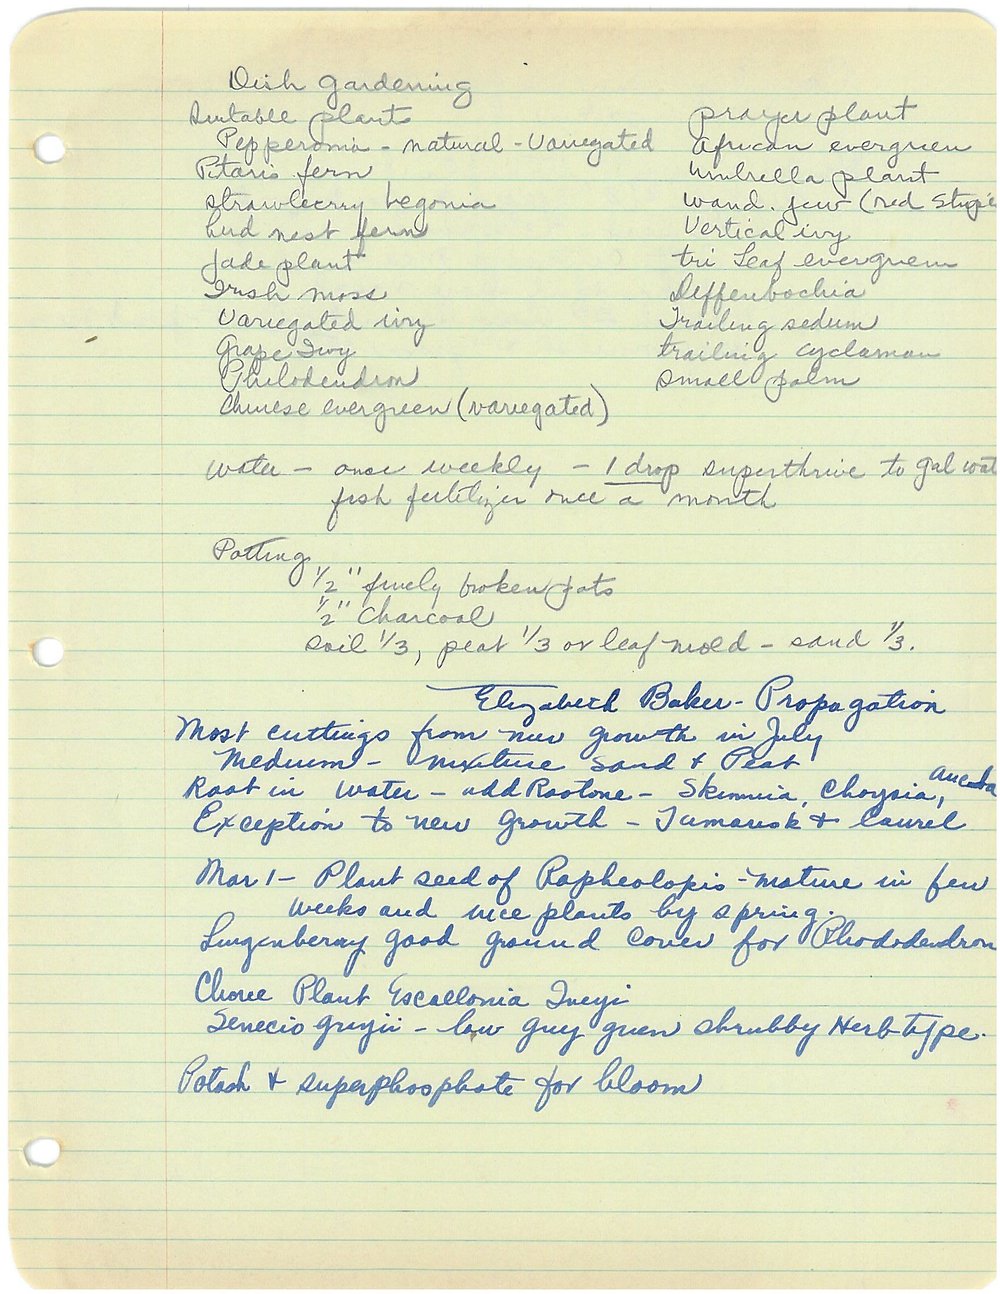 Dish gardening
Suitable plants
Pepperomia - natural - variegated
Pitaris fern
strawberry begonia
bird nest fern
Jade plant
Irish moss
Variegated ivy
Grape Ivy
Philodendron
Chinese evergreen (variegated)
prayer plant
African evergreen
Umbrella plant
wand. jew (red stripe
Vertical ivy
tri Leaf evergreen
Deffenbochia
Trailing sedum
trailing cyclaman
small palm
Water - once weekly - 1 drop superthrive to gal wat
fish fertilizer once a month
Potting
1/2" finely broken pots
1/2" Charcoal
soil 1/3, peat 1/3 or leaf mold - sand 1/3.
Elizabeth Baker - Propagation
Most cuttings from new growth in July
Medium - mixture sand & Peat
Root in water - add Rootone - Skimmia, Choysia,
Exception to new growth - Tamarisk & laurel
Mar 1 - Plant seed of Rapheolopis - mature in few
weeks and nice plants by spring.
Lingenberry good ground cover for Rhododendron
Choice Plant Escallonia Iveyi
Senecio greyii - low grey green shrubby Herb-type.
Potash & superphosphate for bloom